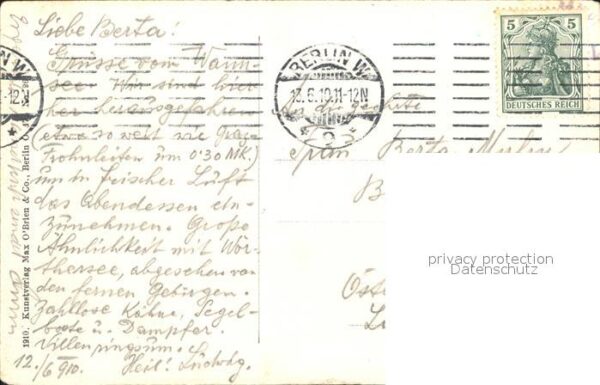 Liebe Berta!
Grüsse vom Wann-
see. Wir sind hier-
her herausgefahren
(etwa so weit wie Graz-
Frohnleiten um 0'30 MK.)
um in frischer Luft
das Abendessen ein-
zunehmen. Große
Ähnlichkeit mit Wör-
thersee, abgesehen von
den fernen Gebirgen.
Zahllose Kähne, Segel-
boote u. Dampfer.
Villen ringsum.
12./6 910. Heil! Ludwig.
1910. Kunstverlag Max O'Brien & Co., Berlin
BERLIN W
13.6.10.11-12N
5 5
DEUTSCHES REICH
Berta
B
Öst
privacy protection
Datenschutz
N W
12N